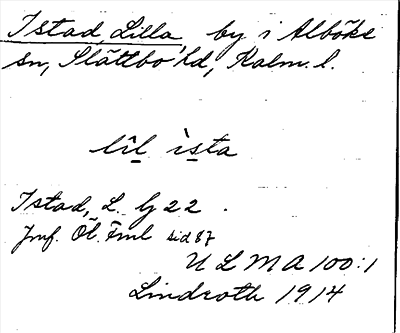 Istad, Lilla by i Alböke
sn, Slättbo hd, Kalm. l.
lìl ìsta
Istad, L. by 22.
Jmf. Öl. Fml sid 87
ULMA 100:1
Lindroth 1914